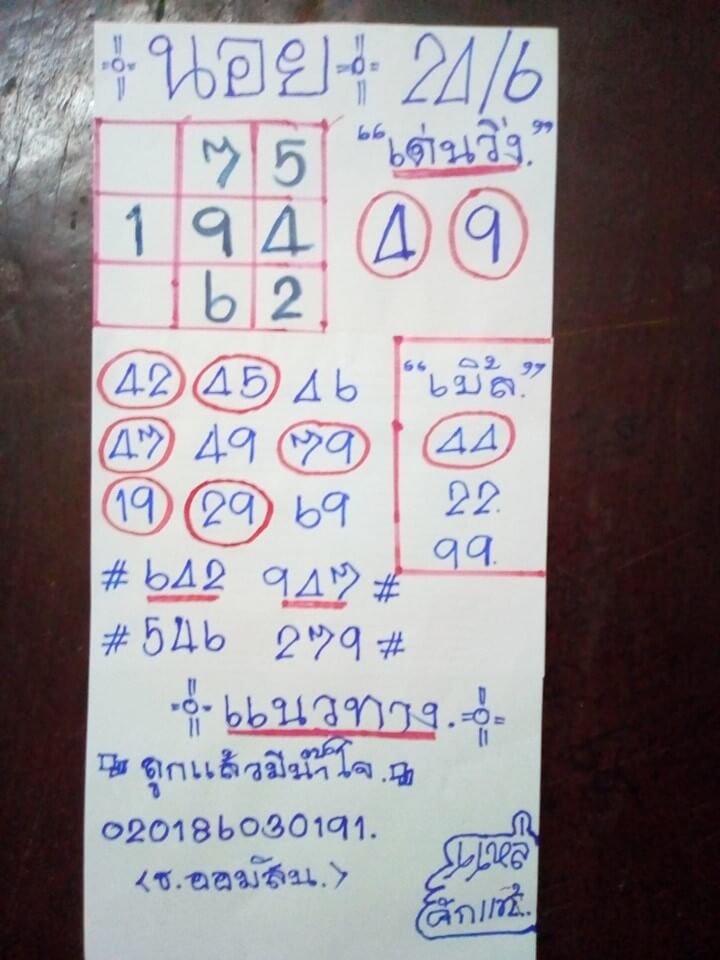 นอย 24/6
7 5
1 9 4
6 2
"เด่นวิ่ง."
4 9
42 45 46
47 49 79
19 29 69
"เบิ้ล."
44
22.
99.
# 642 947 #
# 546 279 #
แนวทาง.
ถูกแล้วมีน้ำใจ.
020186030191.
<ธ.ออมสิน.>